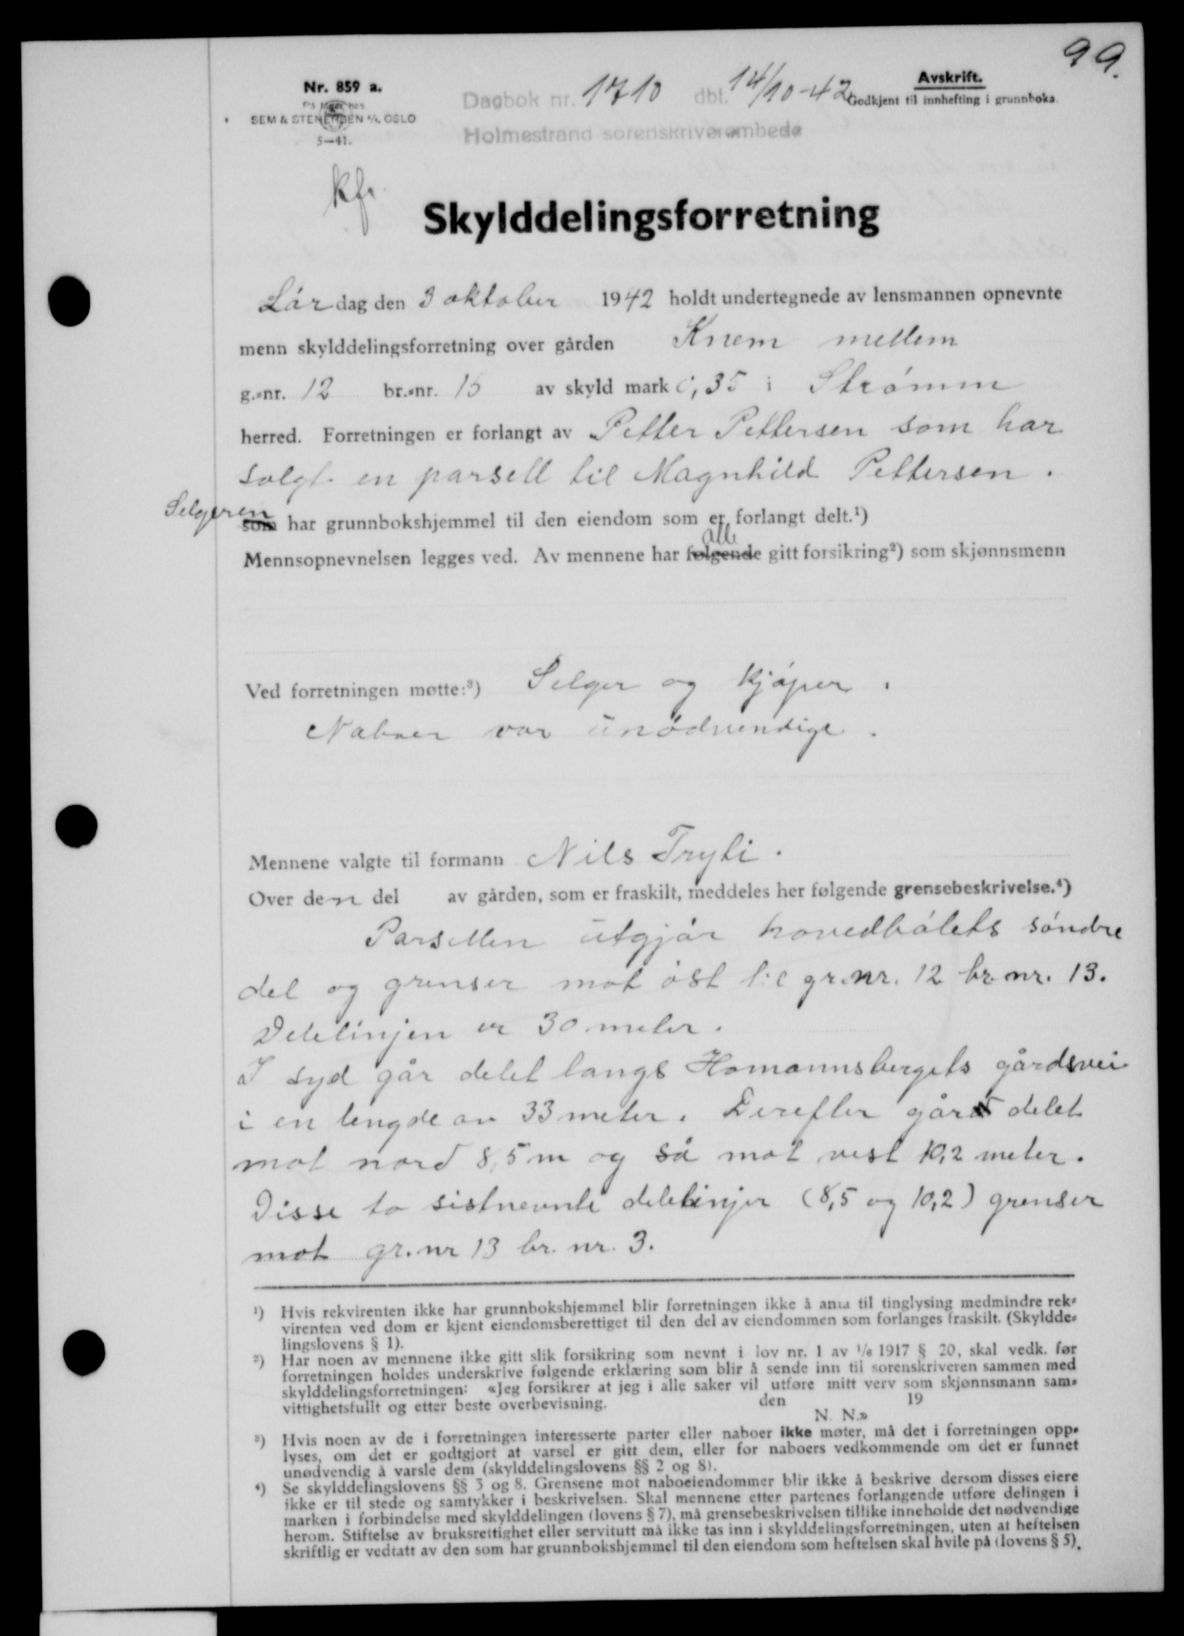 99.
Nr. 859 a.
SEM & STENERSEN A/S, OSLO
5—41.
Dagbok nr. 1710 dbl. 14/10-42
Holmestrand sorenskriverembede
Avskrift.
Godkjent til innhefting i grunnboka
kfr.
Skylddelingsforretning
Lördag den 3 oktober 1942 holdt undertegnede av lensmannen opnevnte
menn skylddelingsforretning over gården Knem mellem
g.-nr. 12 br.-nr. 15 av skyld mark 0,35 i Strömm
herred. Forretningen er forlangt av Petter Pettersen som har
solgt en parsell til Magnhild Pettersen.
Selgeren
som har grunnbokshjemmel til den eiendom som er forlangt delt.¹)
alle
Mennsopnevnelsen legges ved. Av mennene har følgende gitt forsikring²) som skjønnsmenn
Ved forretningen møtte:³) Selger og kjöper.
Naboer var unödvendige.
Mennene valgte til formann Nils Tryti.
Over den del av gården, som er fraskilt, meddeles her følgende grensebeskrivelse.⁴)
Parsellen utgjör hovedbölets söndre
del og grenser mot öst til gr.nr. 12 br. nr. 13.
Delelinjen er 30 meter.
I syd går delet langs Homannsbergets gårdsvei
i en lengde av 33 meter. Derefter går delet
mot nord 8,5 m og så mot vest 10,2 meter.
Disse to sistnevnte delelinjer (8,5 og 10,2) grenser
mot gr. nr 13 br. nr. 3.
¹) Hvis rekvirenten ikke har grunnbokshjemmel blir forretningen ikke å anta til tinglysing medmindre rek-
virenten ved dom er kjent eiendomsberettiget til den del av eiendommen som forlanges fraskilt. (Skyldde-
lingslovens § 1).
²) Har noen av mennene ikke gitt slik forsikring som nevnt i lov nr. 1 av 1/6 1917 § 20, skal vedk. før
forretningen holdes underskrive følgende erklæring som blir å sende inn til sorenskriveren sammen med
skylddelingsforretningen: «Jeg forsikrer at jeg i alle saker vil utføre mitt verv som skjønnsmann sam-
vittighetsfullt og etter beste overbevisning. den 19
N. N.»
³) Hvis noen av de i forretningen interesserte parter eller naboer ikke møter, må det i forretningen opp-
lyses, om det er godtgjort at varsel er gitt dem, eller for naboers vedkommende om det er funnet
unødvendig å varsle dem (skylddelingslovens §§ 2 og 8).
⁴) Se skylddelingslovens §§ 3 og 8. Grensene mot naboeiendommer blir ikke å beskrive dersom disses eiere
ikke er til stede og samtykker i beskrivelsen. Skal mennene etter partenes forlangende utføre delingen i
marken i forbindelse med skylddelingen (lovens § 7), må grensebeskrivelsen tillike inneholde det nødvendige
herom. Stiftelse av bruksrettighet eller servitutt må ikke tas inn i skylddelingsforretningen, uten at heftelsen
skriftlig er vedtatt av den som har grunnbokshjemmel til den eiendom som heftelsen skal hvile på (lovens § 5).